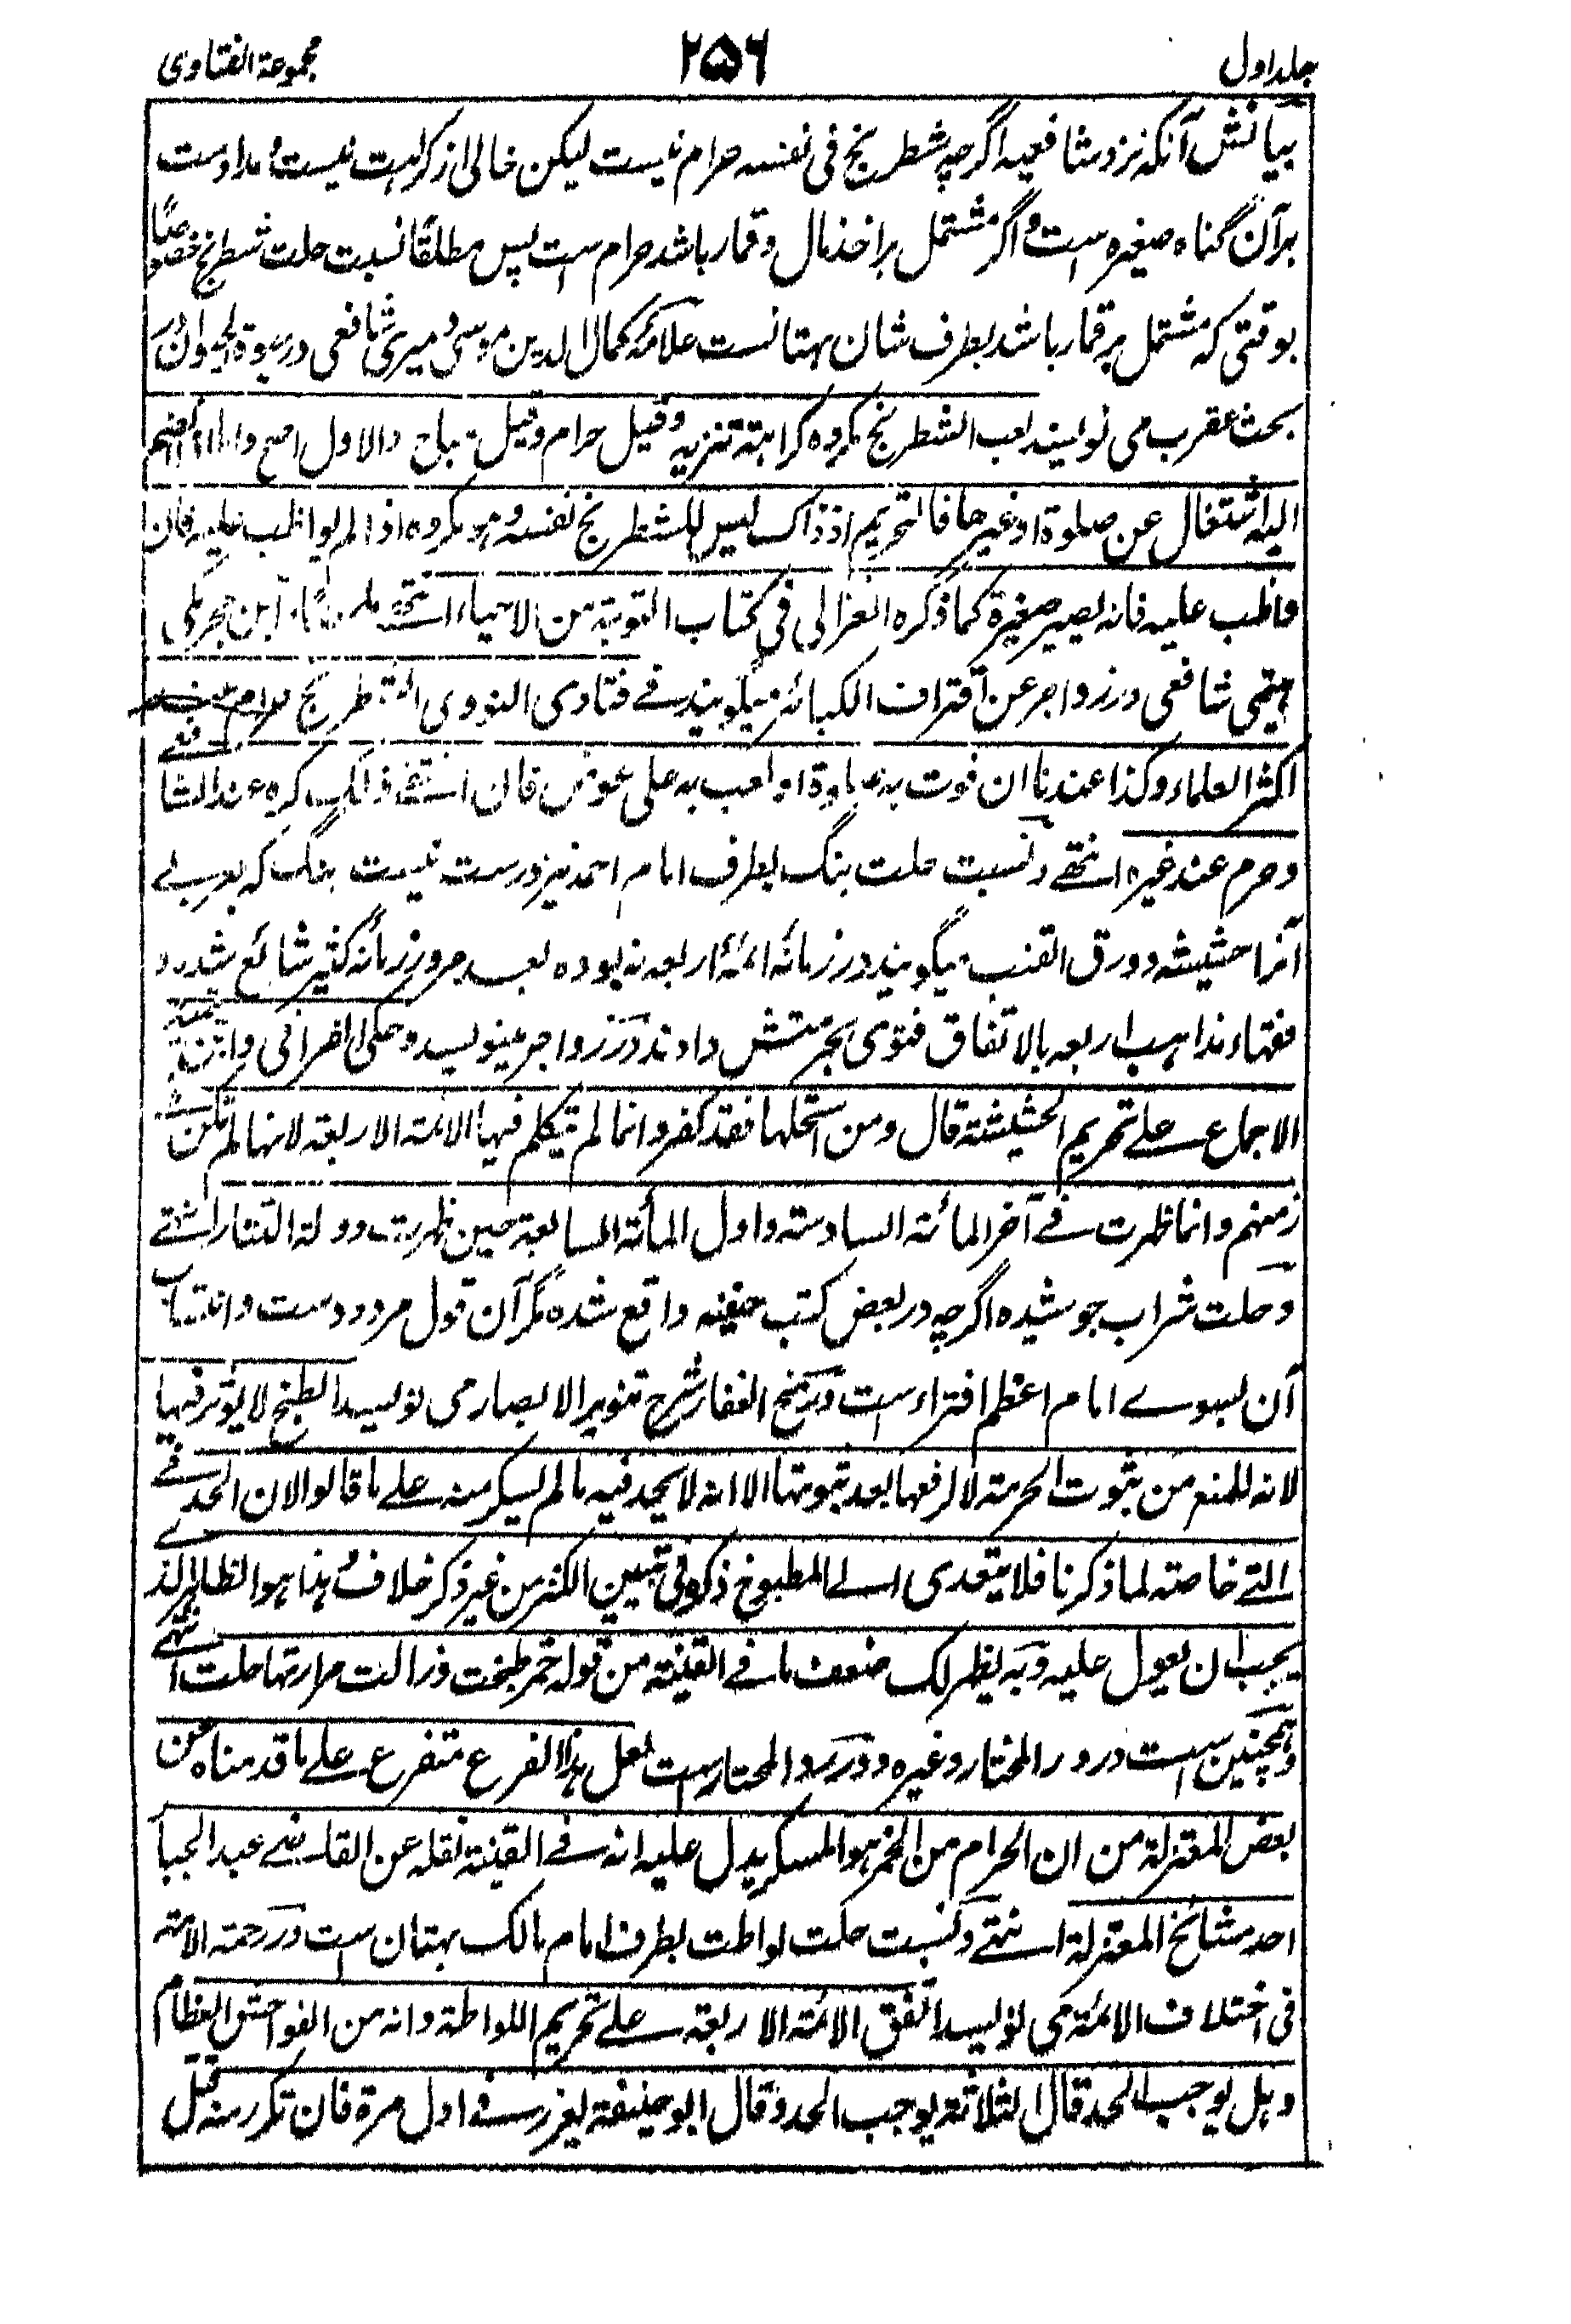 جلد اول
۲۵۶
مجموعۃ الفتاوی
بیانش آنکہ نزد شافعیہ اگرچہ شطرنج فی نفسہ حرام نیست لیکن خالی از کراہت نیست و مداومت
برآن گناہ صغیرہ است و اگر مشتمل بر اخذ مال و قمار باشد حرام است پس مطلقاً نسبت حلت شطرنج خصوصاً
بوقتی کہ مشتمل بر قمار باشد بطرف شان بہتانست علامہ کمال الدین موسی دمیری شافعی در حیوۃ الحیوان در
بحث عقرب می نویسند لعب الشطرنج مکروہ کراہتہ تنزیہ و قیل حرام و قیل مباح والاول اصح و انضم
الیہ اشتغال عن صلوۃ او غیرھا فالتحریم اذ ذاک لیس للشطرنج نفسہ و ہو مکروہ اذا لم یواظب علیہ فان
واظب علیہ فانہ یصیر صغیرۃ کما ذکرہ الغزالی فی کتاب التوبۃ من الاحیاء انتہے ابن حجر مکی
ہیتمی شافعی در زواجر عن اقتراف الکبائر میگویند فے فتاوی النووی الشطرنج حرام عند
اکثر العلماء وکذا عندنا ان فوت بہ صلوۃ او لعب بہ علی عوض فان انتفے ذلک کرہ عند الشافعے
و حرم عند غیرہ انتہے و نسبت حلت بنگ بطرف امام احمد نیز درست نیست بنگ کہ بعربے
آنرا حشیشہ و ورق القنب میگویند در زمانۂ ائمۂ اربعہ نہ بودہ بعد مرور زمانۂ کثیر شائع شدہ و
فقہاء مذاہب اربعہ بالاتفاق فتوی بحرمتش دادند در زواجر مینویسد و حکی القرافی وابن تیمیۃ
الاجماع علے تحریم الحشیشۃ قال و من استحلہا فقد کفر وانما لم یتکلم فیہا الائمۃ الاربعۃ لانہا لم تکن فے
زمنہم وانما ظہرت فے آخر المائۃ السادسۃ واول المأتہ السابعۃ حین ظہرت دولۃ التتار انتہے
و حلت شراب جوشیدہ اگرچہ در بعض کتب حنفیہ واقع شدہ مگر آن قول مردودست و انتساب
آن بسوے امام اعظم افتراء است در منح الغفار شرح تنویر الابصار می نویسد الطبخ لا یؤثر فیہا
لانہ للمنع من ثبوت الحرمۃ لا لرفعہا بعد ثبوتہا الا انہ لا یحد فیہ ما لم یسکر منہ علے ما قالوا لان الحد فے
التے خاصتہ لما ذکرنا فلا یتعدی الے المطبوخ ذکرہ فی تبیین الکنز من غیر ذکر خلاف و ہذا ہو الظاہر الذے
یجب ان یعول علیہ و بہ یظہر لک ضعف ما فے القنیۃ من قولہ خمر طبخت و زالت مرارتہا حلت انتہے
و ہمچنین ست در در المختار وغیرہ و در رد المحتار ست لعل ہذا الفرع متفرع علے ما قدمناہ عن
بعض المعتزلۃ من ان الحرام من الخمر ہو المسکر یدل علیہ انہ فے القنیۃ نقلہ عن القاضے عبد الجبار
احد مشائخ المعتزلۃ انتہے و نسبت حلت لواطت بطرف امام مالک بہتان است در رحمۃ الامتہ
فی اختلاف الائمۃ می نویسد اتفق الائمۃ الاربعۃ علے تحریم اللواطۃ وانہ من الفواحش العظام
و ہل یوجب الحد قال الثلاثۃ یوجب الحد و قال ابو حنیفۃ یعزر فے اول مرۃ فان تکرر منہ قتل